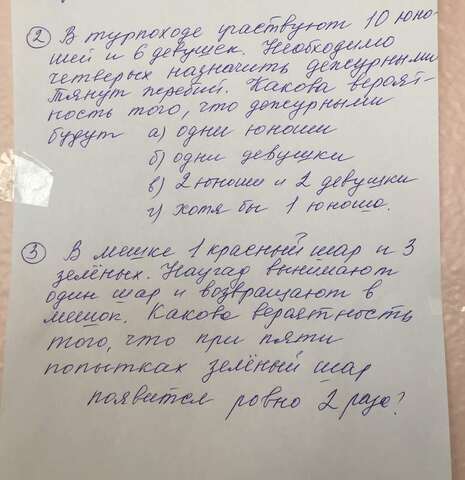 ② В турпоходе участвуют 10 юно-
шей и 6 девушек. Необходимо
четверых назначить дежурными
Тянут жребий. Какова вероят-
ность того, что дежурными
будут а) одни юноши
б) одни девушки
в) 2 юноши и 2 девушки
г) хотя бы 1 юноша.
③ В мешке 1 красный шар и 3
зелёных. Наугад вынимают
один шар и возвращают в
мешок. Какова вероятность
того, что при пяти
попытках зелёный шар
появится ровно 2 раза?